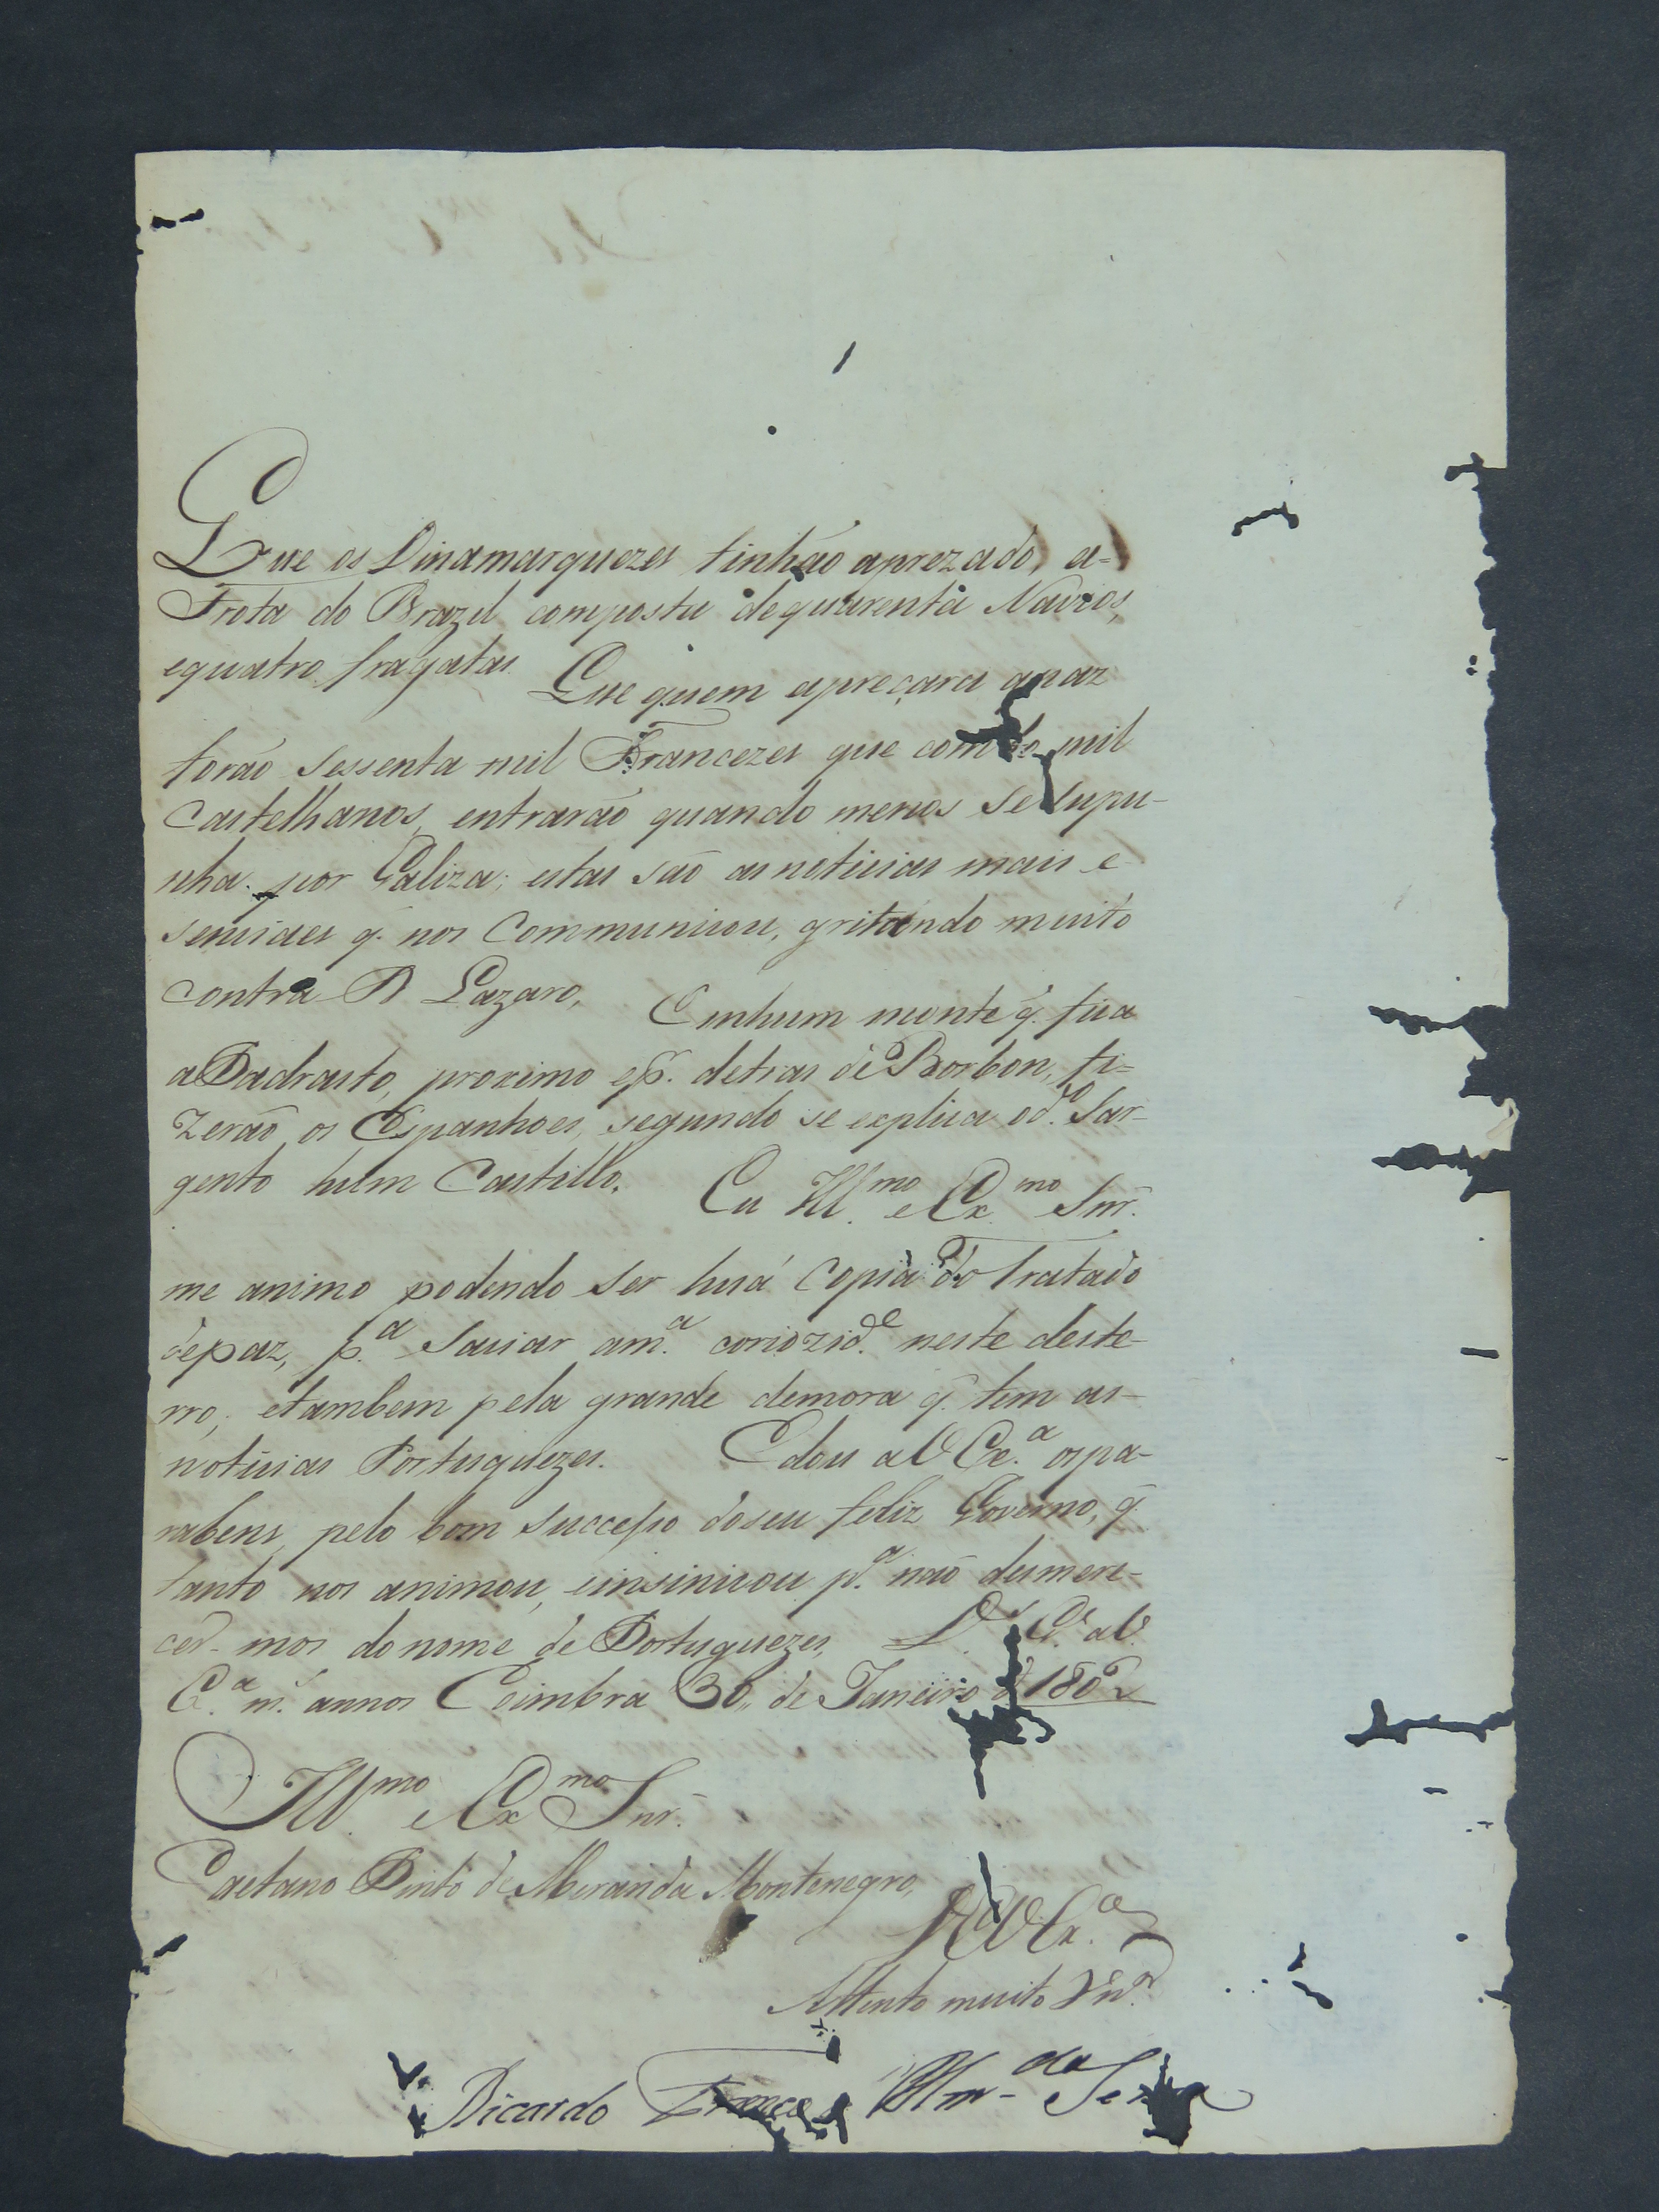 Que os Dinamarquezes tinhão aprezado, a=
Frota do Brazil composta dequarenta Navios,
equatro fragatas Que quem apreçara apaz
forão sessenta mil Francezes que com mil
Castelhanos, entrarão quando menos se supu-
nha por Galiza; estas são as noticias mais e
senciaes q. nos Communicou, gritando muito
contra D Lazaro, Emhum monte q. fica
a Padrasto, proximo e p. detras de Borbon, fi=
zerão os Espanhoes, segundo se explica o d.º Sar-
gento hum Castillo. Eu Ill.mo e Ex.mo Snr.
me animo podendo ser huá Copia do Tratado
depaz, p.a saciar am.a coriozid.e neste deste-
rro, etambem pela grande demora q. tem as-
noticias Portuguezes. E dou a V Ex.a ospa-
rabens, pelo bom successo doseu feliz Governo, q.
tanto nos animou, einsinuou p.a não desmere-
cer-mos do nome de Portuguezes, D.s G.e a V.
Ex.a m.s annos Coimbra 30,, de Janeiro d 1802
Ill.mo e Ex.mo Snr.
Caetano Pinto de Miranda Montenegro,
De V Ex.a
Attento muito V.or
Ricardo Franco Alm-da Serra